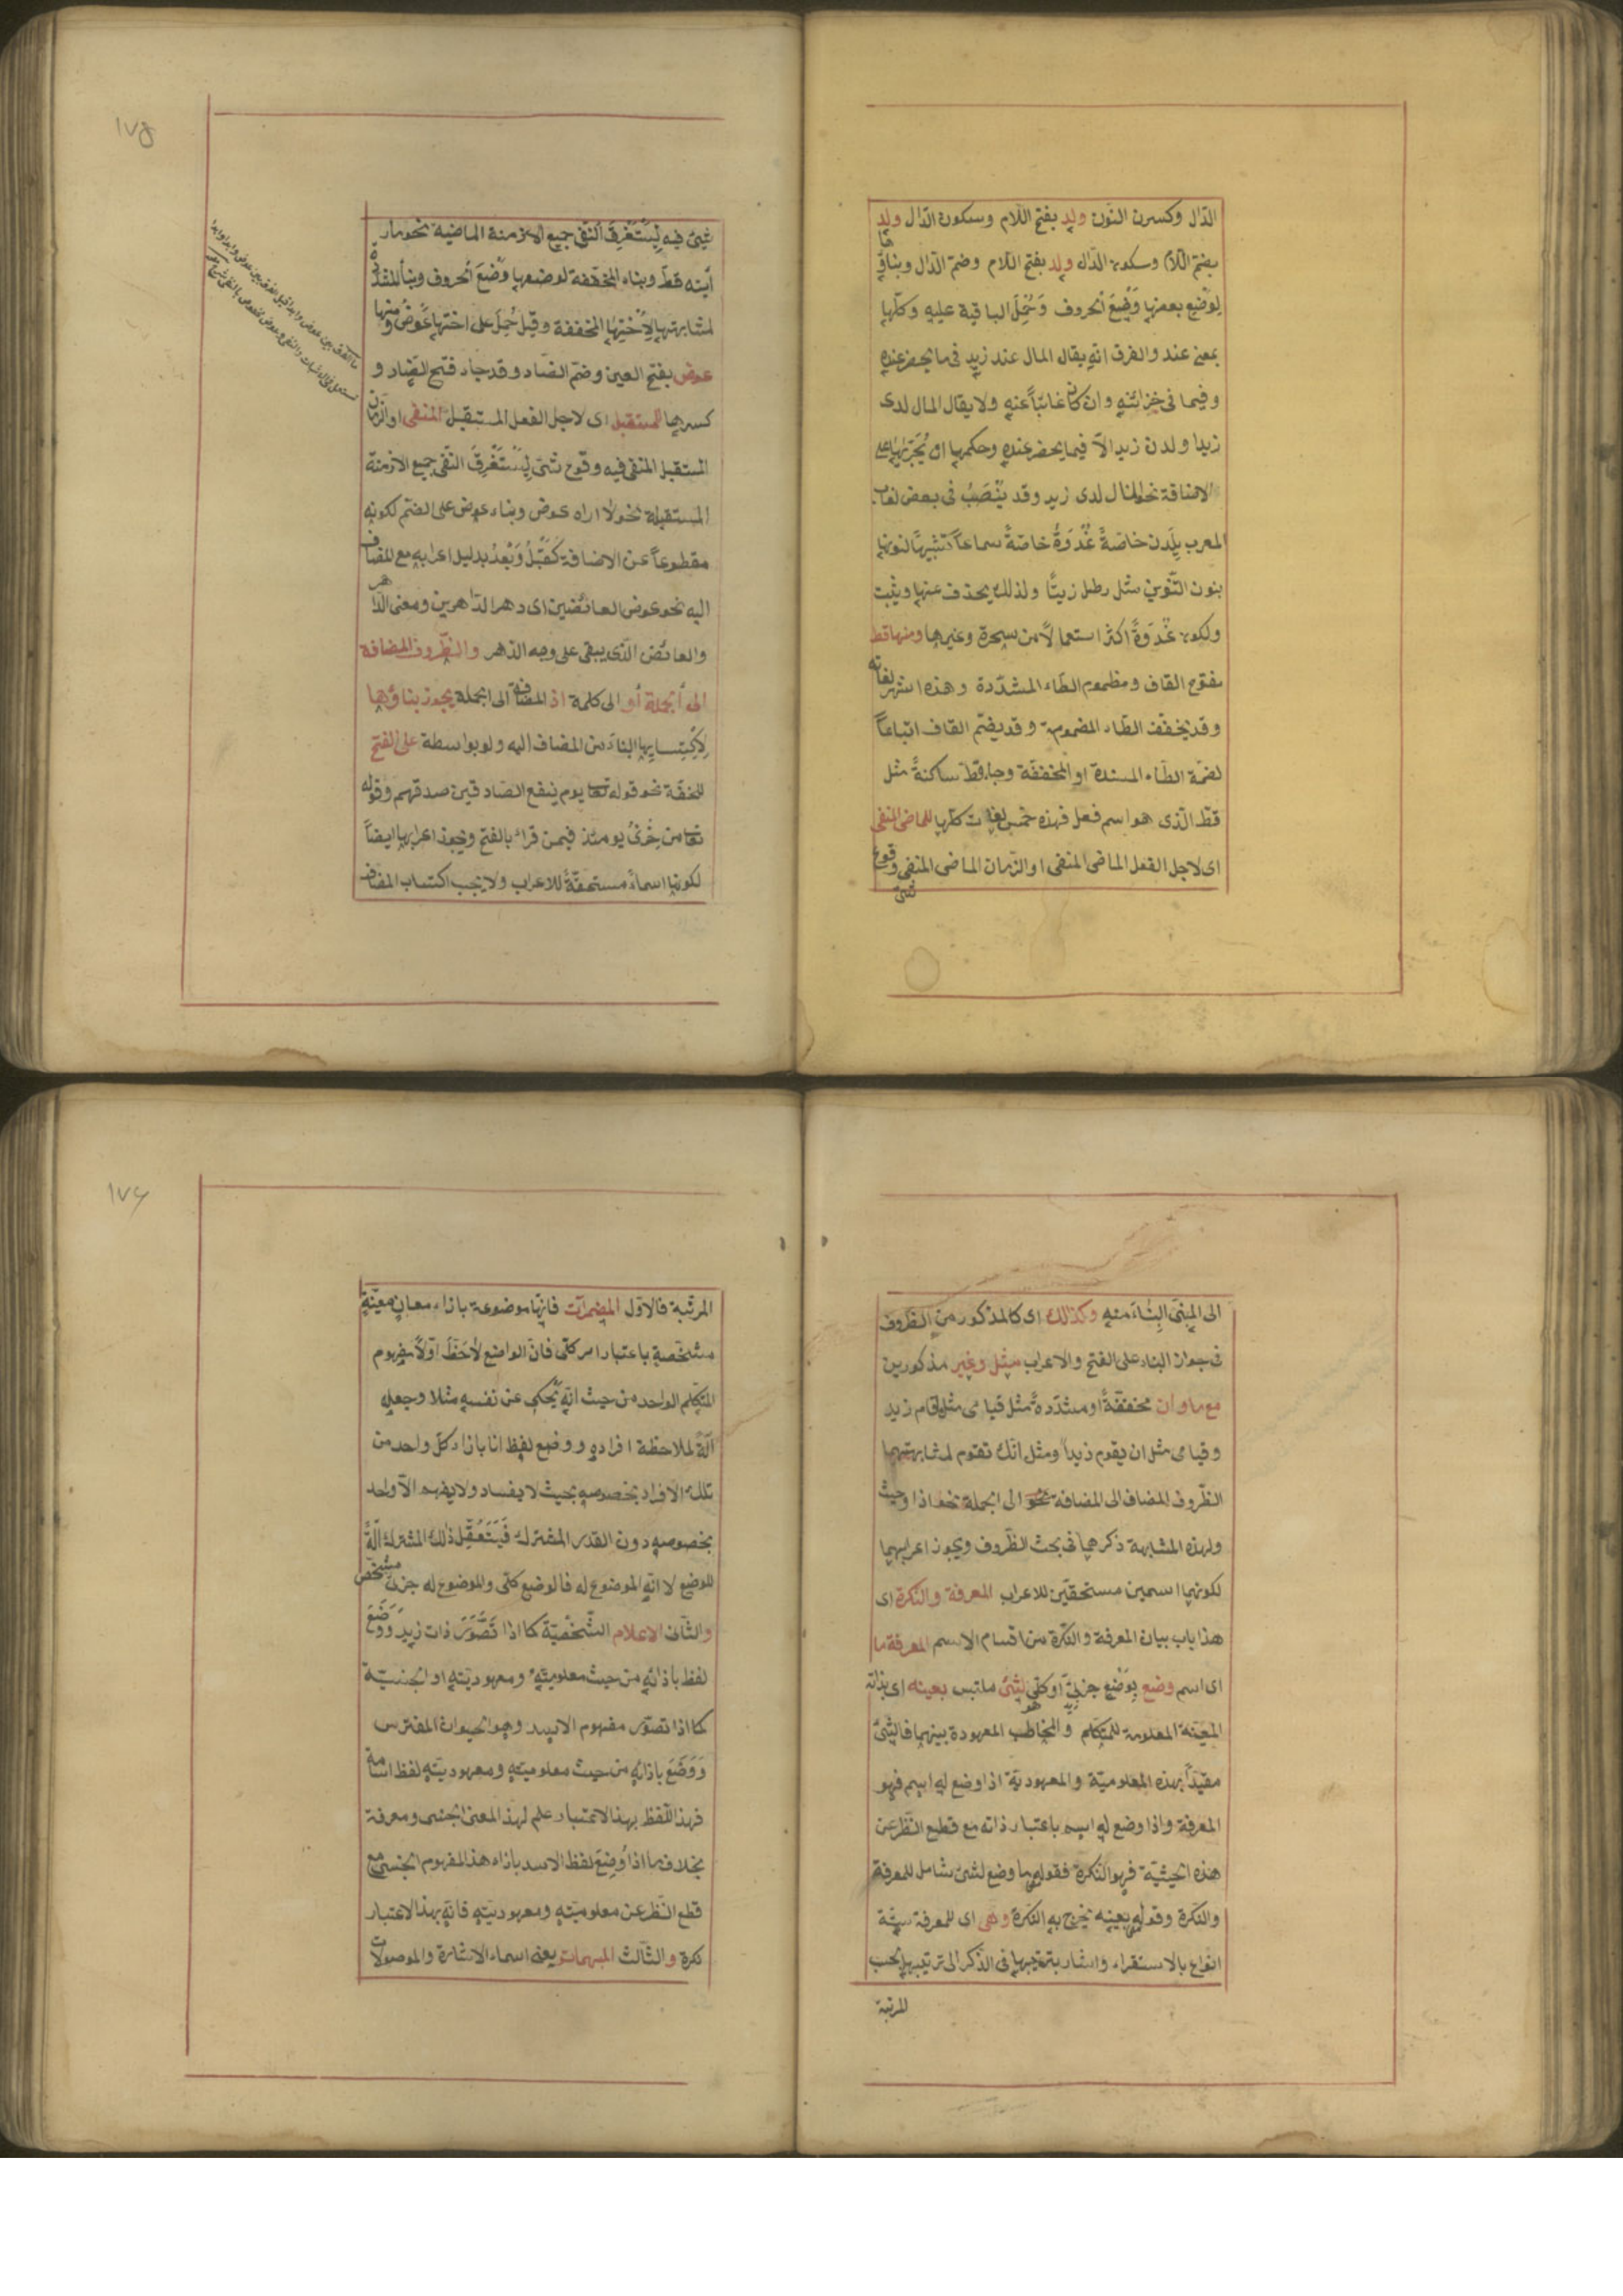 الدّال وكسرن النون ولد بفتح اللام وسكون الدّال ولد
بضم اللام وسكون الدّال ولد بفتح اللام وضم الدّال وبناؤها
لوضع بعضها وَضْعَ الحروف وَحُمِلَ الباقية عليه وكلّها
بمعنى عند والفرق انه يقال المال عند زيد فى ما يحضر عنده
وفيما فى خزائنه وان كان غائبًا عنه ولا يقال المال لدى
زيد او لدن زيد الّا فيما يحضر عنده وحكمها ان يُجَرَّ بها على
الاضافة نحو المال لدى زيد وقد يُنْصَبُ فى بعض لغات
العرب بلدن خاصّةً غُدْوَةً خاصّةً سماعًا تشبيهًا لنونها
بنون التّنوين مثل رطل زيتًا ولذلك يحذف عنها ويثبت
ولكون غُدْوَةً اكثر استعمالًا من سحرة وغيرها ومنها قط
مفتوح القاف ومضموم الطّاء المشدّدة وهذه اشهر لغاته
وقد يخفّف الطّاء المضمومة وقد يضمّ القاف اتباعًا
لضمّة الطّاء المشددة او المخففة وجاء قط ساكنةً مثل
قط الّذى هو اسم فعل فهذه خمس لغات كلّها للماضى المنفى
اى لاجل الفعل الماضى المنفى او الزّمان الماضى المنفى وقوع
شئ
١٧٥
شئ فيه لِيَسْتَغْرِقَ النفى جميع الازمنة الماضية نحو ما ر
أيته قط وبناء المخفّفة لوضعها وَضْعَ الحروف وبناء المشدّدة
لمشابهتها لِأُخْتِهَا المخففة وقيل حُمِلَ على اختها عَوْضُ ومنها
عوض بفتح العين وضم الضّاد وقد جاء فتح الضّاد و
كسرها للمستقبل اى لاجل الفعل المستقبل المنفى او الزمان
المستقبل المنفى فيه وقوع شئ لِيَسْتَغْرِقَ النفى جميع الازمنة
المستقبلة نحو لا اراه عوض وبناء عوض على الضّم لكونه
مقطوعًا عن الاضافة كَقَبْلُ وَبَعْدُ بدليل اعرابه مع المضاف
اليه نحو عوض العائضين اى دهر الدّاهرين ومعنى الدّاهر
والعائض الّذى يبقى على وجه الدّهر والظّروف المضافة
الى الجملة أو الى كلمة اذ المضافة الى الجملة يجوز بناؤها
لِاكْتِسابها البناء من المضاف اليه ولو بواسطة على الفتح
للخفّة نحو قوله تعا يوم ينفع الصّادقين صدقهم وقوله
تعا من خزى يومئذ فيمن قراء بالفتح ويجوز اعرابها ايضًا
لكونها اسماء مستحقّة للاعراب ولا يجب اكتساب المضاف
الى المبنى البناء منه وكذلك اى كالمذكور من الظّروف
فى جواز البناء على الفتح والاعراب مثل وغير مذكورين
مع ما وان مخففةً او مشدّدةً مثل قيامى مثل ما قام زيد
وقيامى مثل ان يقوم زيد ومثل انّك تقوم لمشابهتهما
الظّروف المضاف الى المضافة الى الجملة نحو اذا وحيث
ولهذه المشابهة ذكرهما فى بحث الظّروف ويجوز اعرابهما
لكونهما اسمين مستحقّين للاعراب المعرفة والنّكرة اى
هذا باب بيان المعرفة والنّكرة من اقسام الاسم المعرفة ما
اى اسم وضع بِوَضْعٍ جزئىّ او كلّى لشئ ملتبس بعينه اى بذاته
المعيّنة المعلومة للمتكلم والمخاطب المعهودة بينهما فالشئ
مقيّدًا بهذه المعلوميّة والمعهوديّة اذا وضع له اسم فهو
المعرفة واذا وضع له اسم باعتبار ذاته مع قطع النّظر عن
هذه الحيثيّة فهو النّكرة فقوله ما وضع لشئ شامل للمعرفة
والنّكرة وقوله بعينه يخرج به النّكرة وهى اى المعرفة ستّة
انواع بالاستقراء واشار بترتيبها فى الذّكر الى ترتيبها بحسب
المرتبة
١٧٦
المرتبة فالاوّل المضمرات فانّها موضوعة بازاء معان معيّنة
مشخّصة باعتبار امر كلّى فانّ الواضع لَاحَظَ اوّلًا مفهوم
المتكلّم الواحد من حيث انّه يَحْكى عن نفسه مثلا وجعله
آلةً لملاحظة افراده ووضع لفظ انا بازاء كلّ واحد من
تلك الافراد بخصوصه بحيث لا يفاد ولا يفهم الّا واحد
بخصوصه دون القدر المشترك فَيَتَعَقَّل ذلك المشترك آلةً
للوضع لا انّه الموضوع له فالوضع كلّى والموضوع له جزئىّ مشخّص
والثّانى الاعلام الشّخصيّة كما اذا تَصَوَّرَ ذات زيد وَوَضَعَ
لفظ بازائه من حيث معلوميّته ومعهوديّته او الجنسيّة
كما اذا تصوّر مفهوم الاسد وهو الحيوان المفترس
وَوَضَعَ بازائه من حيث معلوميّته ومعهوديّته لفظ اسامة
فهذا اللّفظ بهذا الاعتبار علم لهذا المعنى الجنسى ومعرفة
بخلاف ما اذا وُضِعَ لفظ الاسد بازاء هذا المفهوم الجنسى مع
قطع النّظر عن معلوميّته ومعهوديّته فانّه بهذا الاعتبار
نكرة والثّالث المبهمات يعنى اسماء الاشارة والموصولات